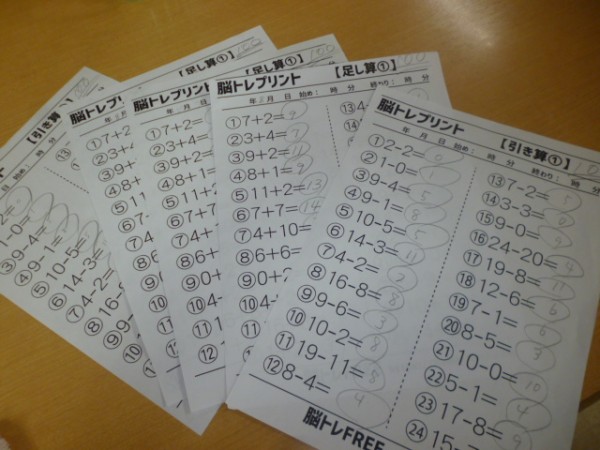 【引き算①】
①2-2=
1-0=
③9-4=
④9-1=
⑤10-5=
⑥14-3=
⑦4-2=
⑧16-8
⑨9-
⑩10
脳トレプリント
【足し算①】
①7+2
②3+4
③9+2
④8+1
⑤11+2
⑥7+7
⑦4+
⑧6+
⑨0+
⑩4
⑪1
⑫
脳トレプリント
【足し算①】
①7+2=
②3+4=
③9+2=
④8+1=
⑤11+2
⑥7+7=
⑦4+1
⑧6+6
⑨0+2
⑩4-
⑪11
⑫1
脳トレプリント
【足し算①】100
年 月 日 始め: 時 分 終わり: 時 分
①7+2=9
②3+4=7
③9+2=11
④8+1=9
⑤11+2=13
⑥7+7=14
⑦4+10=
⑧6+6=
⑨0+2=
⑩4-
⑪1
⑫1
⑬4
脳トレプリント
【引き算①】100
年 月 日 始め: 時 分 終わり: 時 分
①2-2=0
②1-0=1
③9-4=5
④9-1=8
⑤10-5=5
⑥14-3=11
⑦4-2=2
⑧16-8=8
⑨9-6=3
⑩10-2=8
⑪19-11=8
⑫8-4=4
⑬7-2=5
⑭3-3=0
⑮9-0=9
⑯24-20=4
⑰19-8=11
⑱12-6=6
⑲7-1=6
⑳8-5=3
㉑10-0=10
㉒5-1=4
㉓17-8=9
㉔15-
脳トレFREE